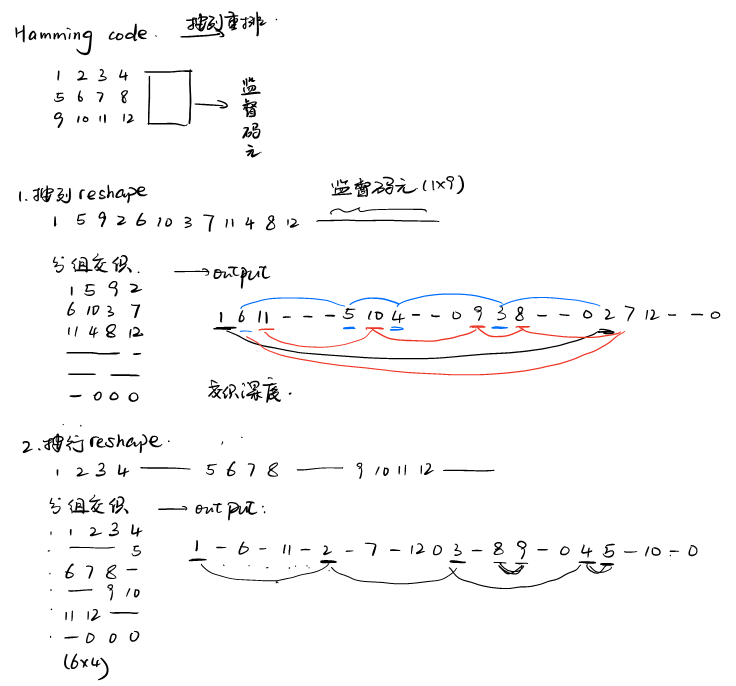 Hamming code. 按列重排.
1 2 3 4
5 6 7 8
9 10 11 12
监督码元
1. 按列reshape
监督码元(1×9)
1 5 9 2 6 10 3 7 11 4 8 12
分组交织. → output
1 5 9 2
6 10 3 7
11 4 8 12
— — –
— —
– 0 0 0
1 6 11 - - - 5 10 4 - - 0 9 3 8 - - 0 2 7 12 - - 0
交织深度.
2. 按行reshape.
1 2 3 4 —— 5 6 7 8 —— 9 10 11 12 ——
分组交织 → output:
1 2 3 4
—— 5
6 7 8 –
— 9 10
11 12 —
– 0 0 0
(6×4)
1 - 6 - 11 - 2 - 7 - 12 0 3 - 8 9 - 0 4 5 - 10 - 0